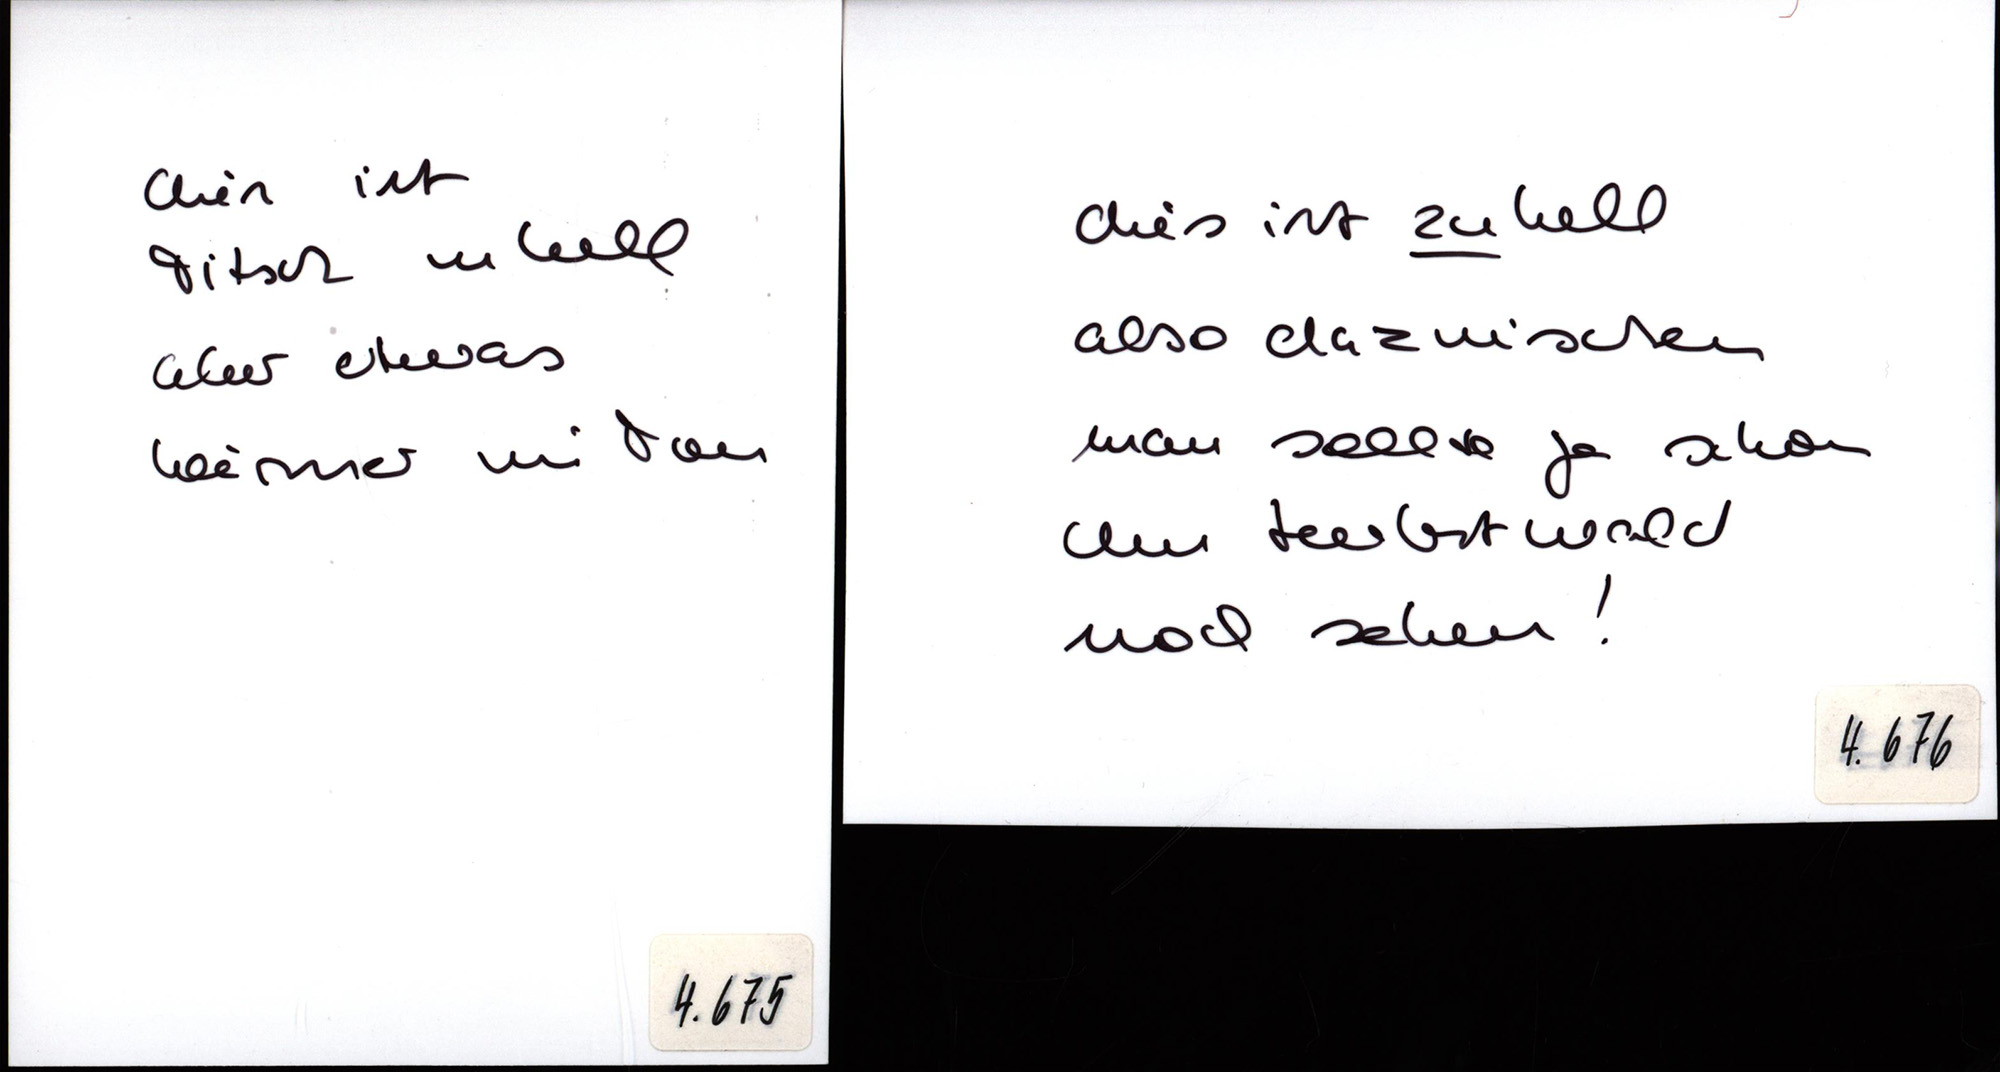 ist
hell
aber etwas
im Ton
4.675
dies ist zu hell
also dazwischen
man sollte ja schon
den Herbstwald
noch sehen!
4.676